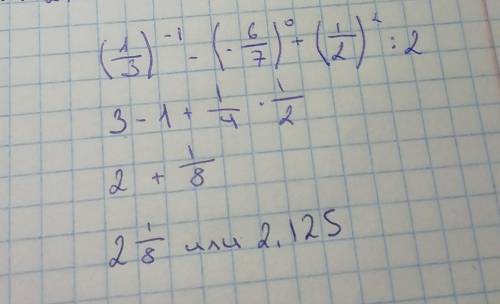 (1/3)^-1 - (-6/7)^0 + (1/2)^2 : 2
3 - 1 + 1/4 · 1/2
2 + 1/8
2 1/8 или 2,125